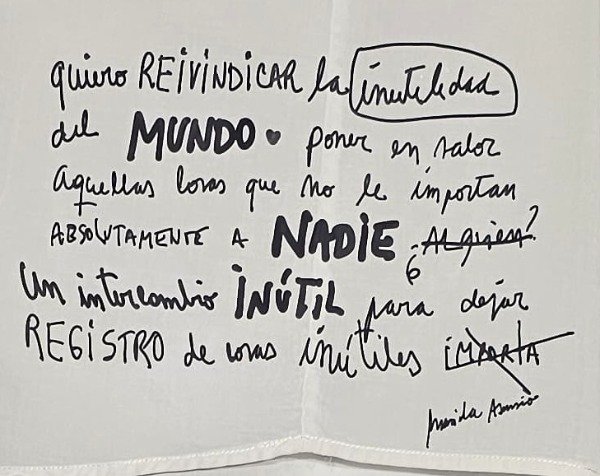 quiero REIVINDICAR la inutilidad
del MUNDO. poner en valor
aquellas cosas que no le importan
ABSOLUTAMENTE A NADIE. ¿Alguien?
Un intercambio INÚTIL para dejar
REGISTRO de cosas inútiles IMPORTA